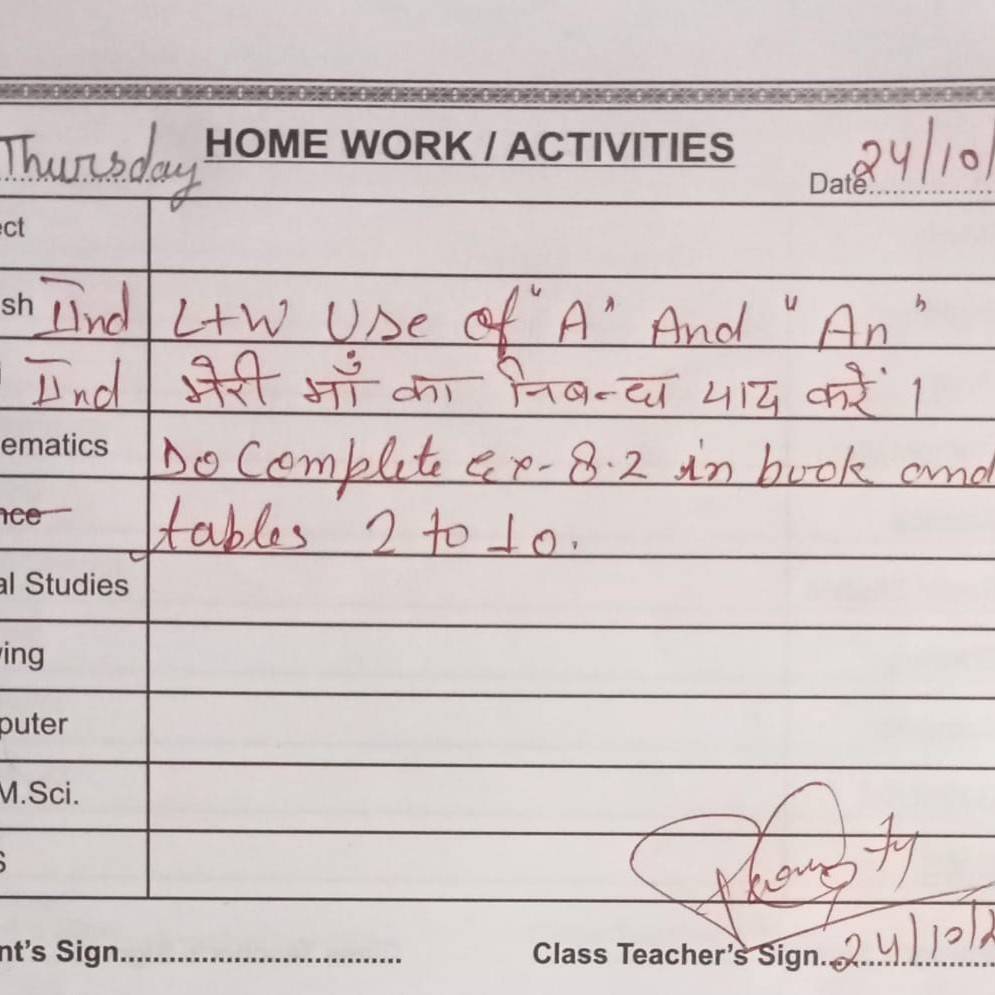 Thursday HOME WORK / ACTIVITIES
Date 24/10/
ect
sh IInd L+W Use of "A" And "An"
IInd मेरी माँ का निबन्ध याद करें ।
ematics Do Complete Ex-8.2 in book and
nce tables 2 to 10.
al Studies
ing
puter
M.Sci.
S
nt's Sign.................................. Class Teacher's Sign...24/10/2